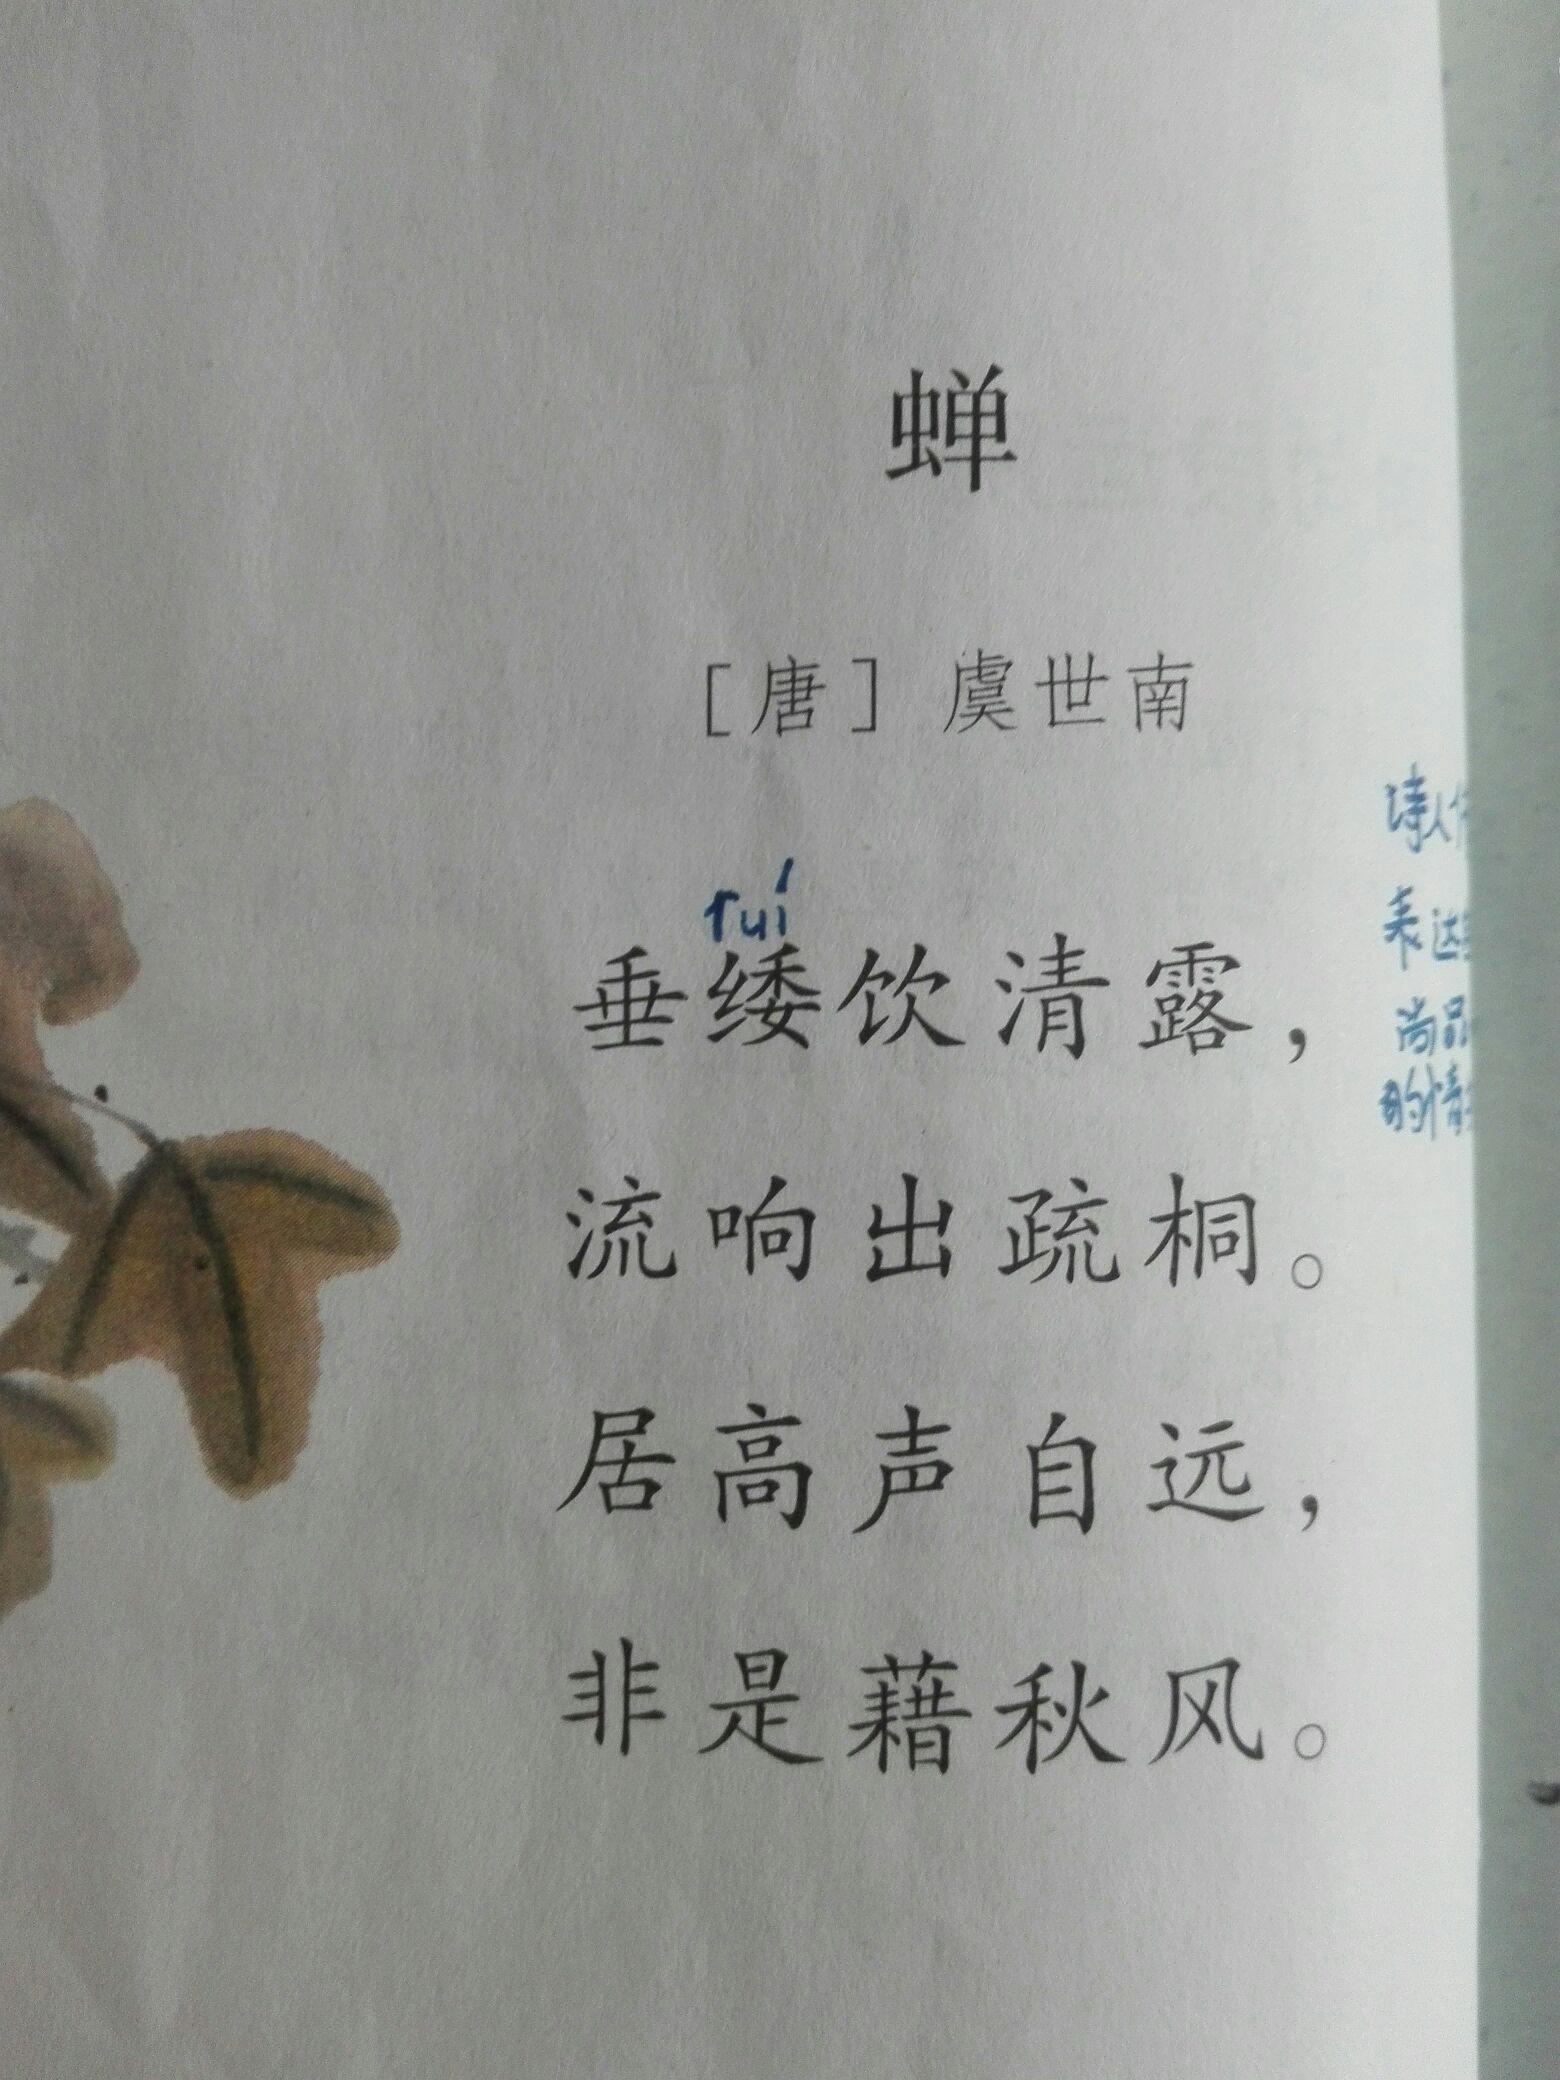 蝉
[唐] 虞世南
ruí
垂緌饮清露，
流响出疏桐。
居高声自远，
非是藉秋风。
诗人
表达
尚品
的情